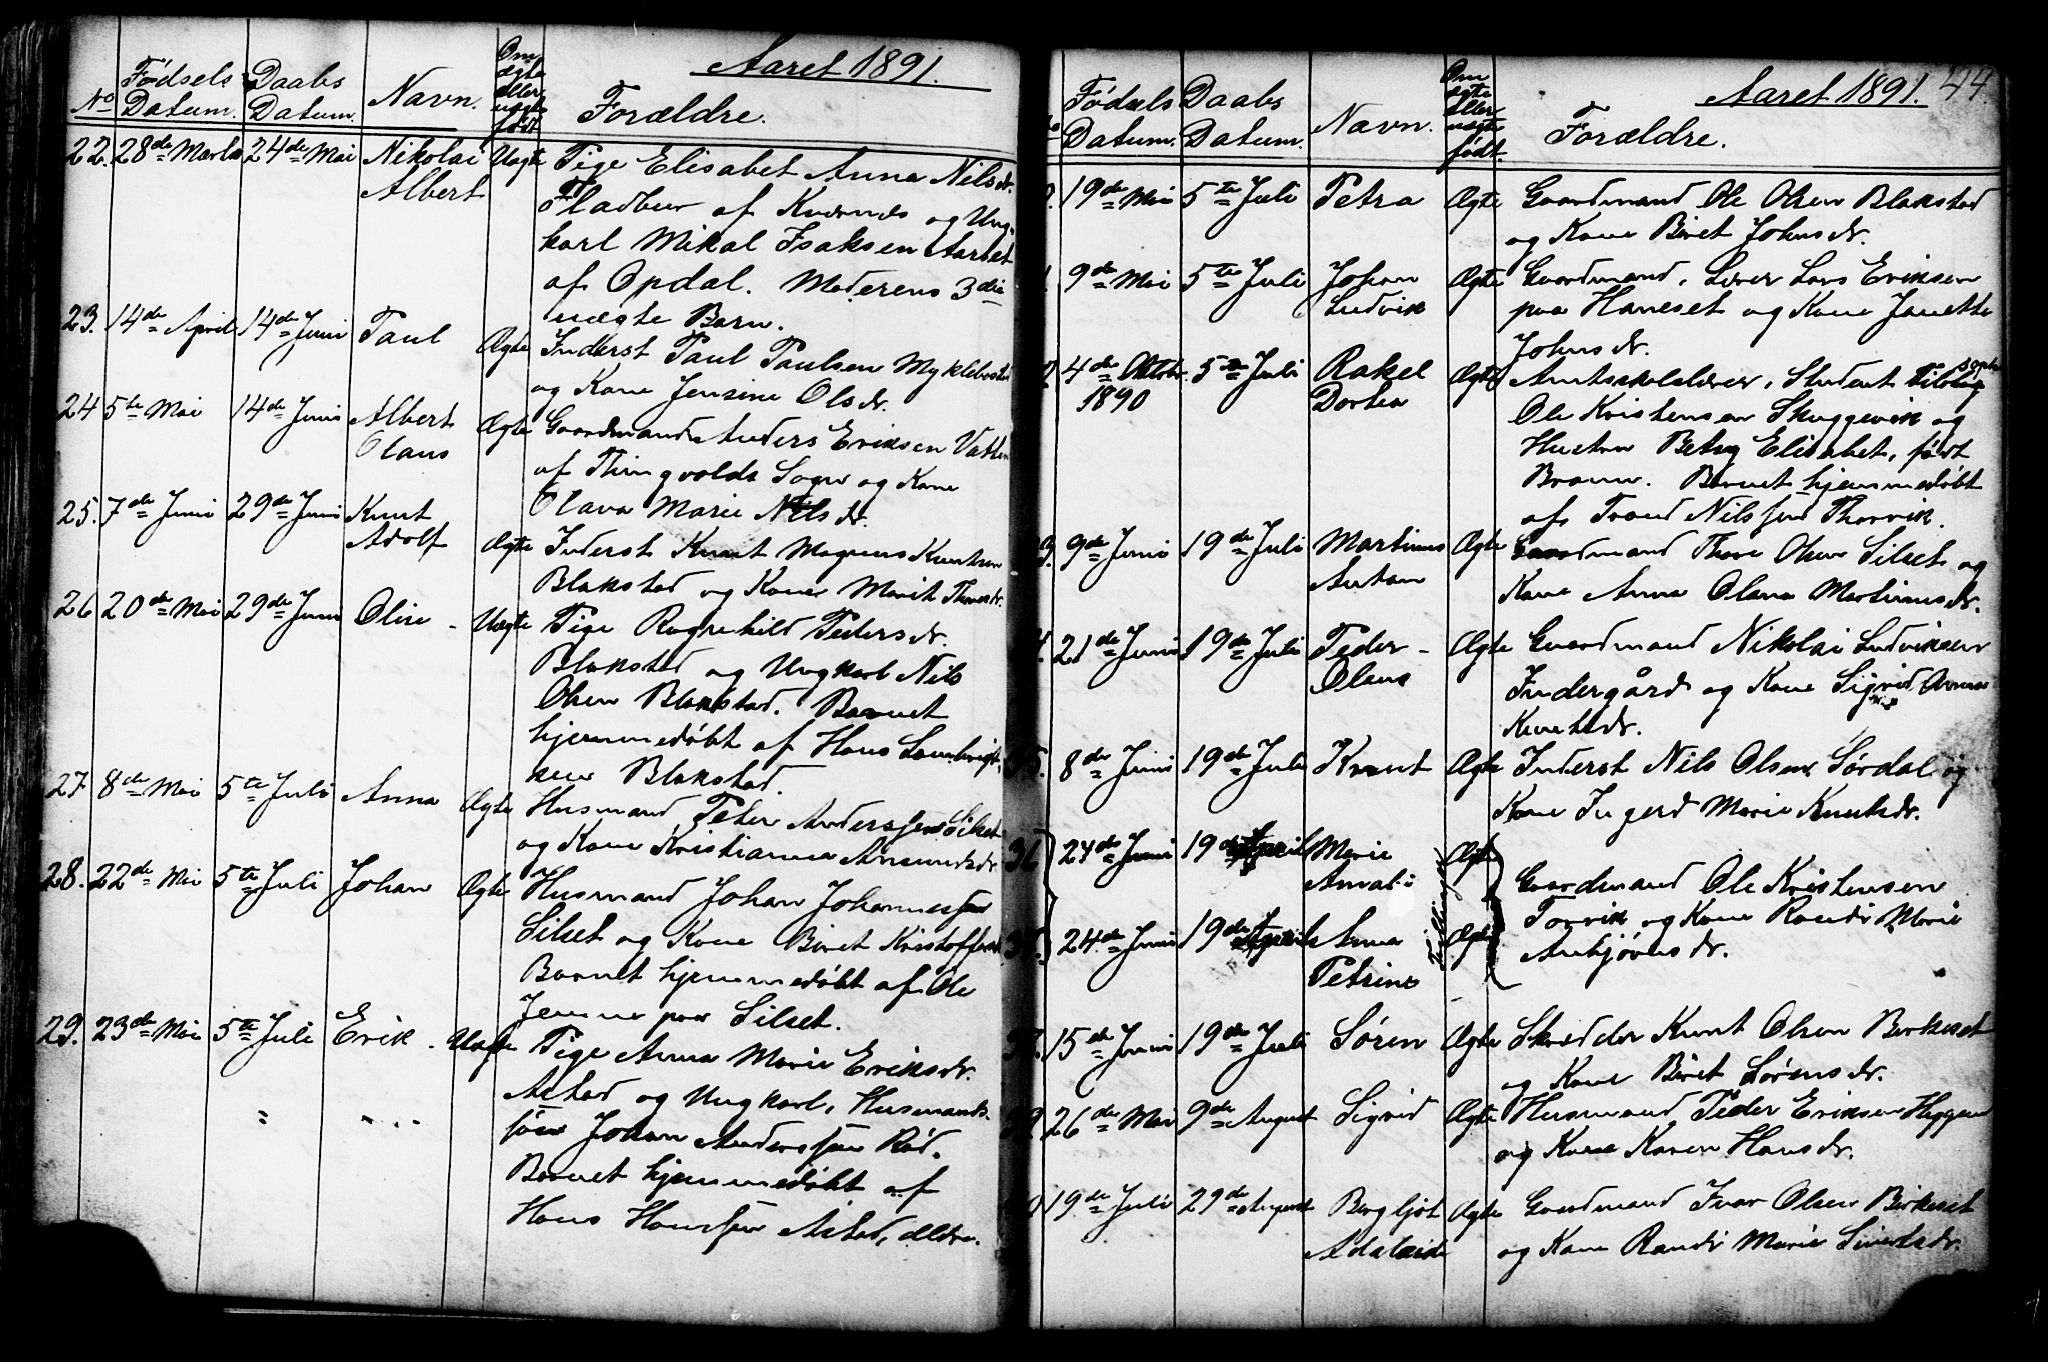 Aaret 1891.
No Fødsels Datum. Daabs Datum. Navn. Om ægte eller uægte født Forældre.
22. 28de Marts 24de Mai Nikolai Uægte Pige Elisabet Anna Nilsdr.
Albert Fladbur af Kvernes og Ung-
karl Mikal Isaksen Aarbet
af Opdal. Moderens 3die
uægte Barn.
23. 14de April 14de Juni Paul Ægte Inderst Paul Paulsen Myklebostad
og Kone Jensine Olsdr.
24 5te Mai 14de Juni Albert Ægte Gaardmand Anders Eriksen Vatten
Olaus af Thingvolds Sogn og Kone
Olava Marie Nilsdr.
25. 7de Juni 29de Juni Knut Ægte Inderst Knut Magnus Knutsen
Adolf Blakstad og Kone Marit Thoresdr.
26 20de Mai 29de Juni Oline - Uægte Pige Ragnhild Pedersdr.
Blakstad og Ungkarl Nils
Olsen Blakstad. Barnet
hjemmedøbt af Hans Lambrigt-
sen Blakstad.
27. 8de Mai 5te Juli Anna Ægte Husmand Peter Anderssen Silset
og Kone Kristianna Amundsdr.
28. 22de Mai 5te Juli Johan Ægte Husmand Johan Johannessen
Silset og Kone Beret Kristoffersdr.
Barnet hjemmedøbt af Ole
Jensen paa Silset.
29. 23de Mai 5te Juli Erik - Uægte Pige Anna Marie Eriksdr.
Astad og Ungkarl, Husmands-
søn Johan Anderssen Rød.
Barnet hjemmedøbt af
Hans Hanssen Astad, ældre.
Aaret 1891. 44.
No Fødsels Datum. Daabs Datum. Navn. Om ægte eller uægte født. Forældre.
19de Mai 5te Juli Petra Ægte Gaardmand Ole Olsen Blakstad
og Kone Beret Johnsdr.
9de Mai 5te Juli Johan Ægte Gaardmand, Lærer Lars Eriksen
Ludvik paa Haneset og Kone Janette
Johnsdr.
4de Oktobr. 5te Juli Rakel Ægte Amtsskolelærer, Student
1890 Dortea Ole Kristensen Skuggevik og
Hustru Betzy Elisabet, født
Bruun. Barnet hjemmedøbt
af Trond Nilssen Thorvik.
9de Juni 19de Juli Martinus Ægte Gaardmand Thore Olsen Silset og
Anton Kone Anna Olava Martinusdr.
21de Juni 19de Juli Peder - Ægte Gaardmand Nikolai Ludviksen
Olaus Indergård og Kone Sigrid Anna
Knutsdr.
35. 8de Juni 19de Juli Knut Ægte Inderst Nils Olsen Sørdal og
Kone Ingerd Marie Knutsdr.
36 24de Juni 19de Marie Ægte Gaardmand Ole Kristensen
Amalie Tvillinger Torvik og Kone Randi Marie
37. 24de Juni 19de Anna Ægte Anbjørnsdr.
Petrine
38. 15de Juni 19de Juli Søren Ægte Skrædder Knut Olsen Birkeset
og Kone Beret Sørensdr.
39. 26de Mai 9de August Sigrid Ægte Husmand Peder Eriksen Heggem
og Kone Karen Hansdr.
19de Juli 29de August Bergljot Ægte Gaardmand Ivar Olsen Birkeset
Adelaide og Kone Randi Marie Sivertsdr.